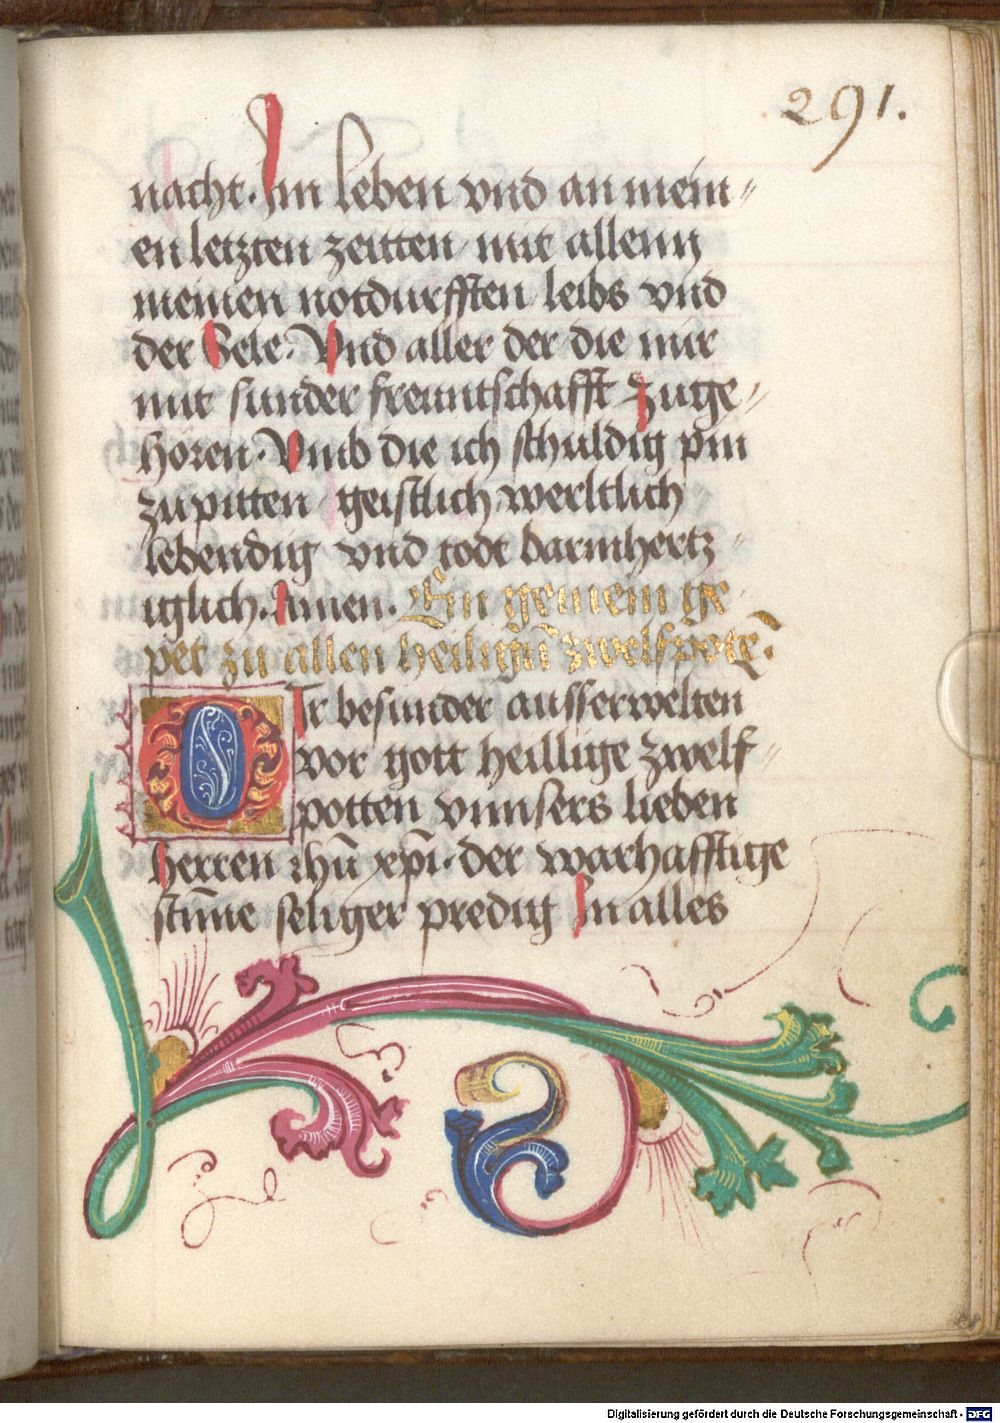 291.
nacht. Im leben vnd an mein⸗
en letzten zeitten mit allenn
meinen notdurfften leibs vnd
der Sele. Vnd aller der die mir
mit sunder freuntschafft zuge⸗
hören. Vmb die ich schuldig pin
zu pitten geistlich werltlich
lebendig vnd todt barmhertz⸗
iglich. Amen. Ein gemein ge
pet zu allen heilign̄ zwelfpotē.
O Ir besunder ausserwelten
vor gott heillige zwelf⸗
potten vnnsers lieben
herren ihū xp̄i. der warhafftige
stīme seliger predig In alles
Digitalisierung gefördert durch die Deutsche Forschungsgemeinschaft - DFG